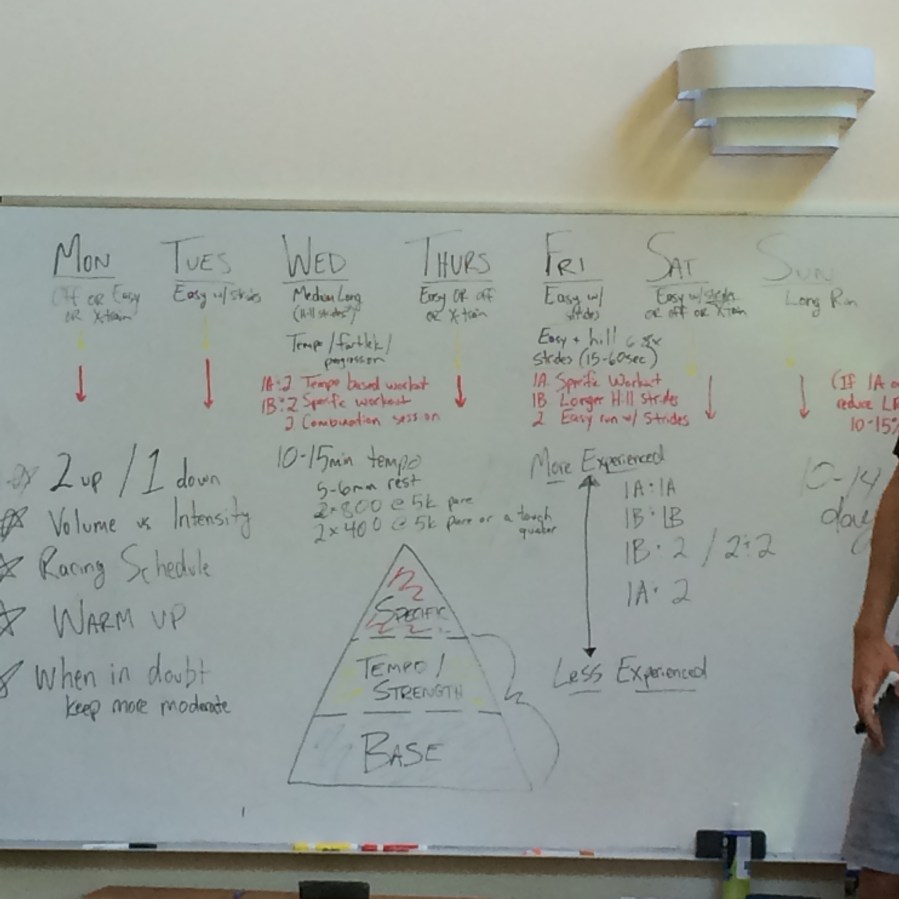 MON TUES WED THURS FRI SAT SUN
Off OR Easy
OR X-train
Easy w/ strides
Medium Long
(Hill strides)
Easy OR off
OR X-train
Easy w/
strides
Easy w/ strides
OR off OR X-train
Long Run
Tempo/fartlek/
progression
Easy + hill
strides (15-60sec)
1A:2 Tempo based workout
1B:2 Specific workout
2 Combination session
1A Specific Workout
1B Longer Hill strides
2 Easy run w/ Strides
(IF 1A
reduce
10-15%
2 up / 1 down
Volume vs Intensity
Racing Schedule
WARM UP
When in doubt
keep more moderate
10-15min tempo
5-6min rest
2x800 @ 5k pace
2x400 @ 5k pace or a touch
quicker
SPECIFIC
TEMPO/
STRENGTH
BASE
More Experienced
1A:1A
1B:1B
1B:2 / 2:2
1A:2
Less Experienced
10-14
day